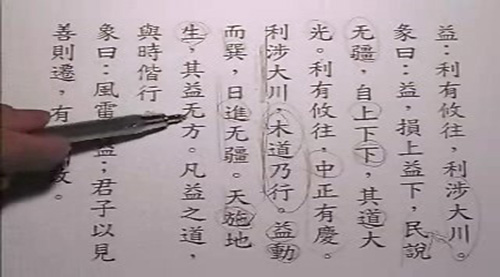 益：利有攸往，利涉大川。
彖曰：益，損上益下，民說
无疆，自上下下，其道大
光。利有攸往，中正有慶。
利涉大川，木道乃行。益動
而巽，日進无疆。天施地
生，其益无方。凡益之道，
與時偕行
象曰：風雷益；君子以見
善則遷，有。